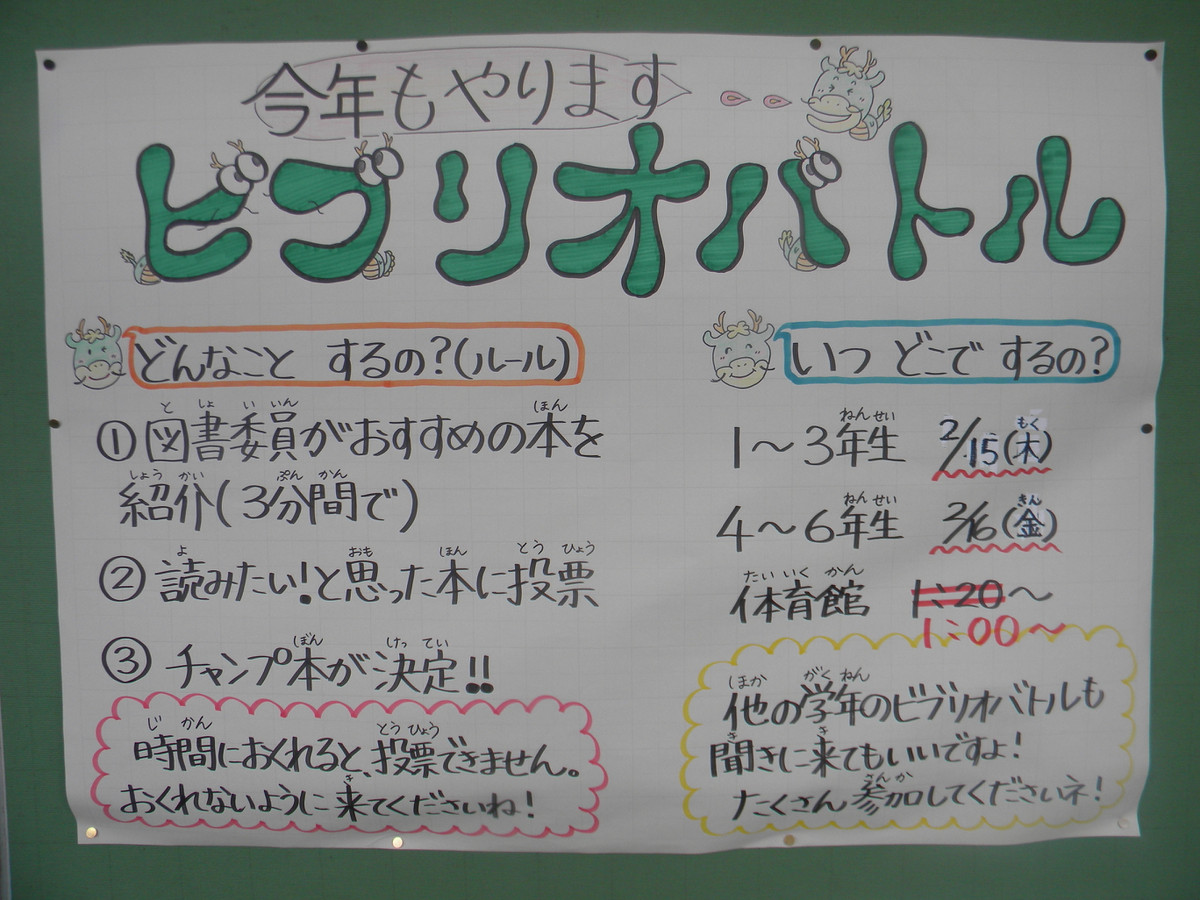 今年もやります
ビブリオバトル
どんなこと するの?(ルール)
①図書委員がおすすめの本を
紹介(3分間で)
②読みたい!と思った本に投票
③チャンプ本が決定!!
時間におくれると、投票できません。
おくれないように来てくださいね!
いつ どこで するの?
1～3年生 2/15(木)
4～6年生 2/16(金)
体育館 1:20～
1:00～
他の学年のビブリオバトルも
聞きに来てもいいですよ!
たくさん参加してくださいネ!